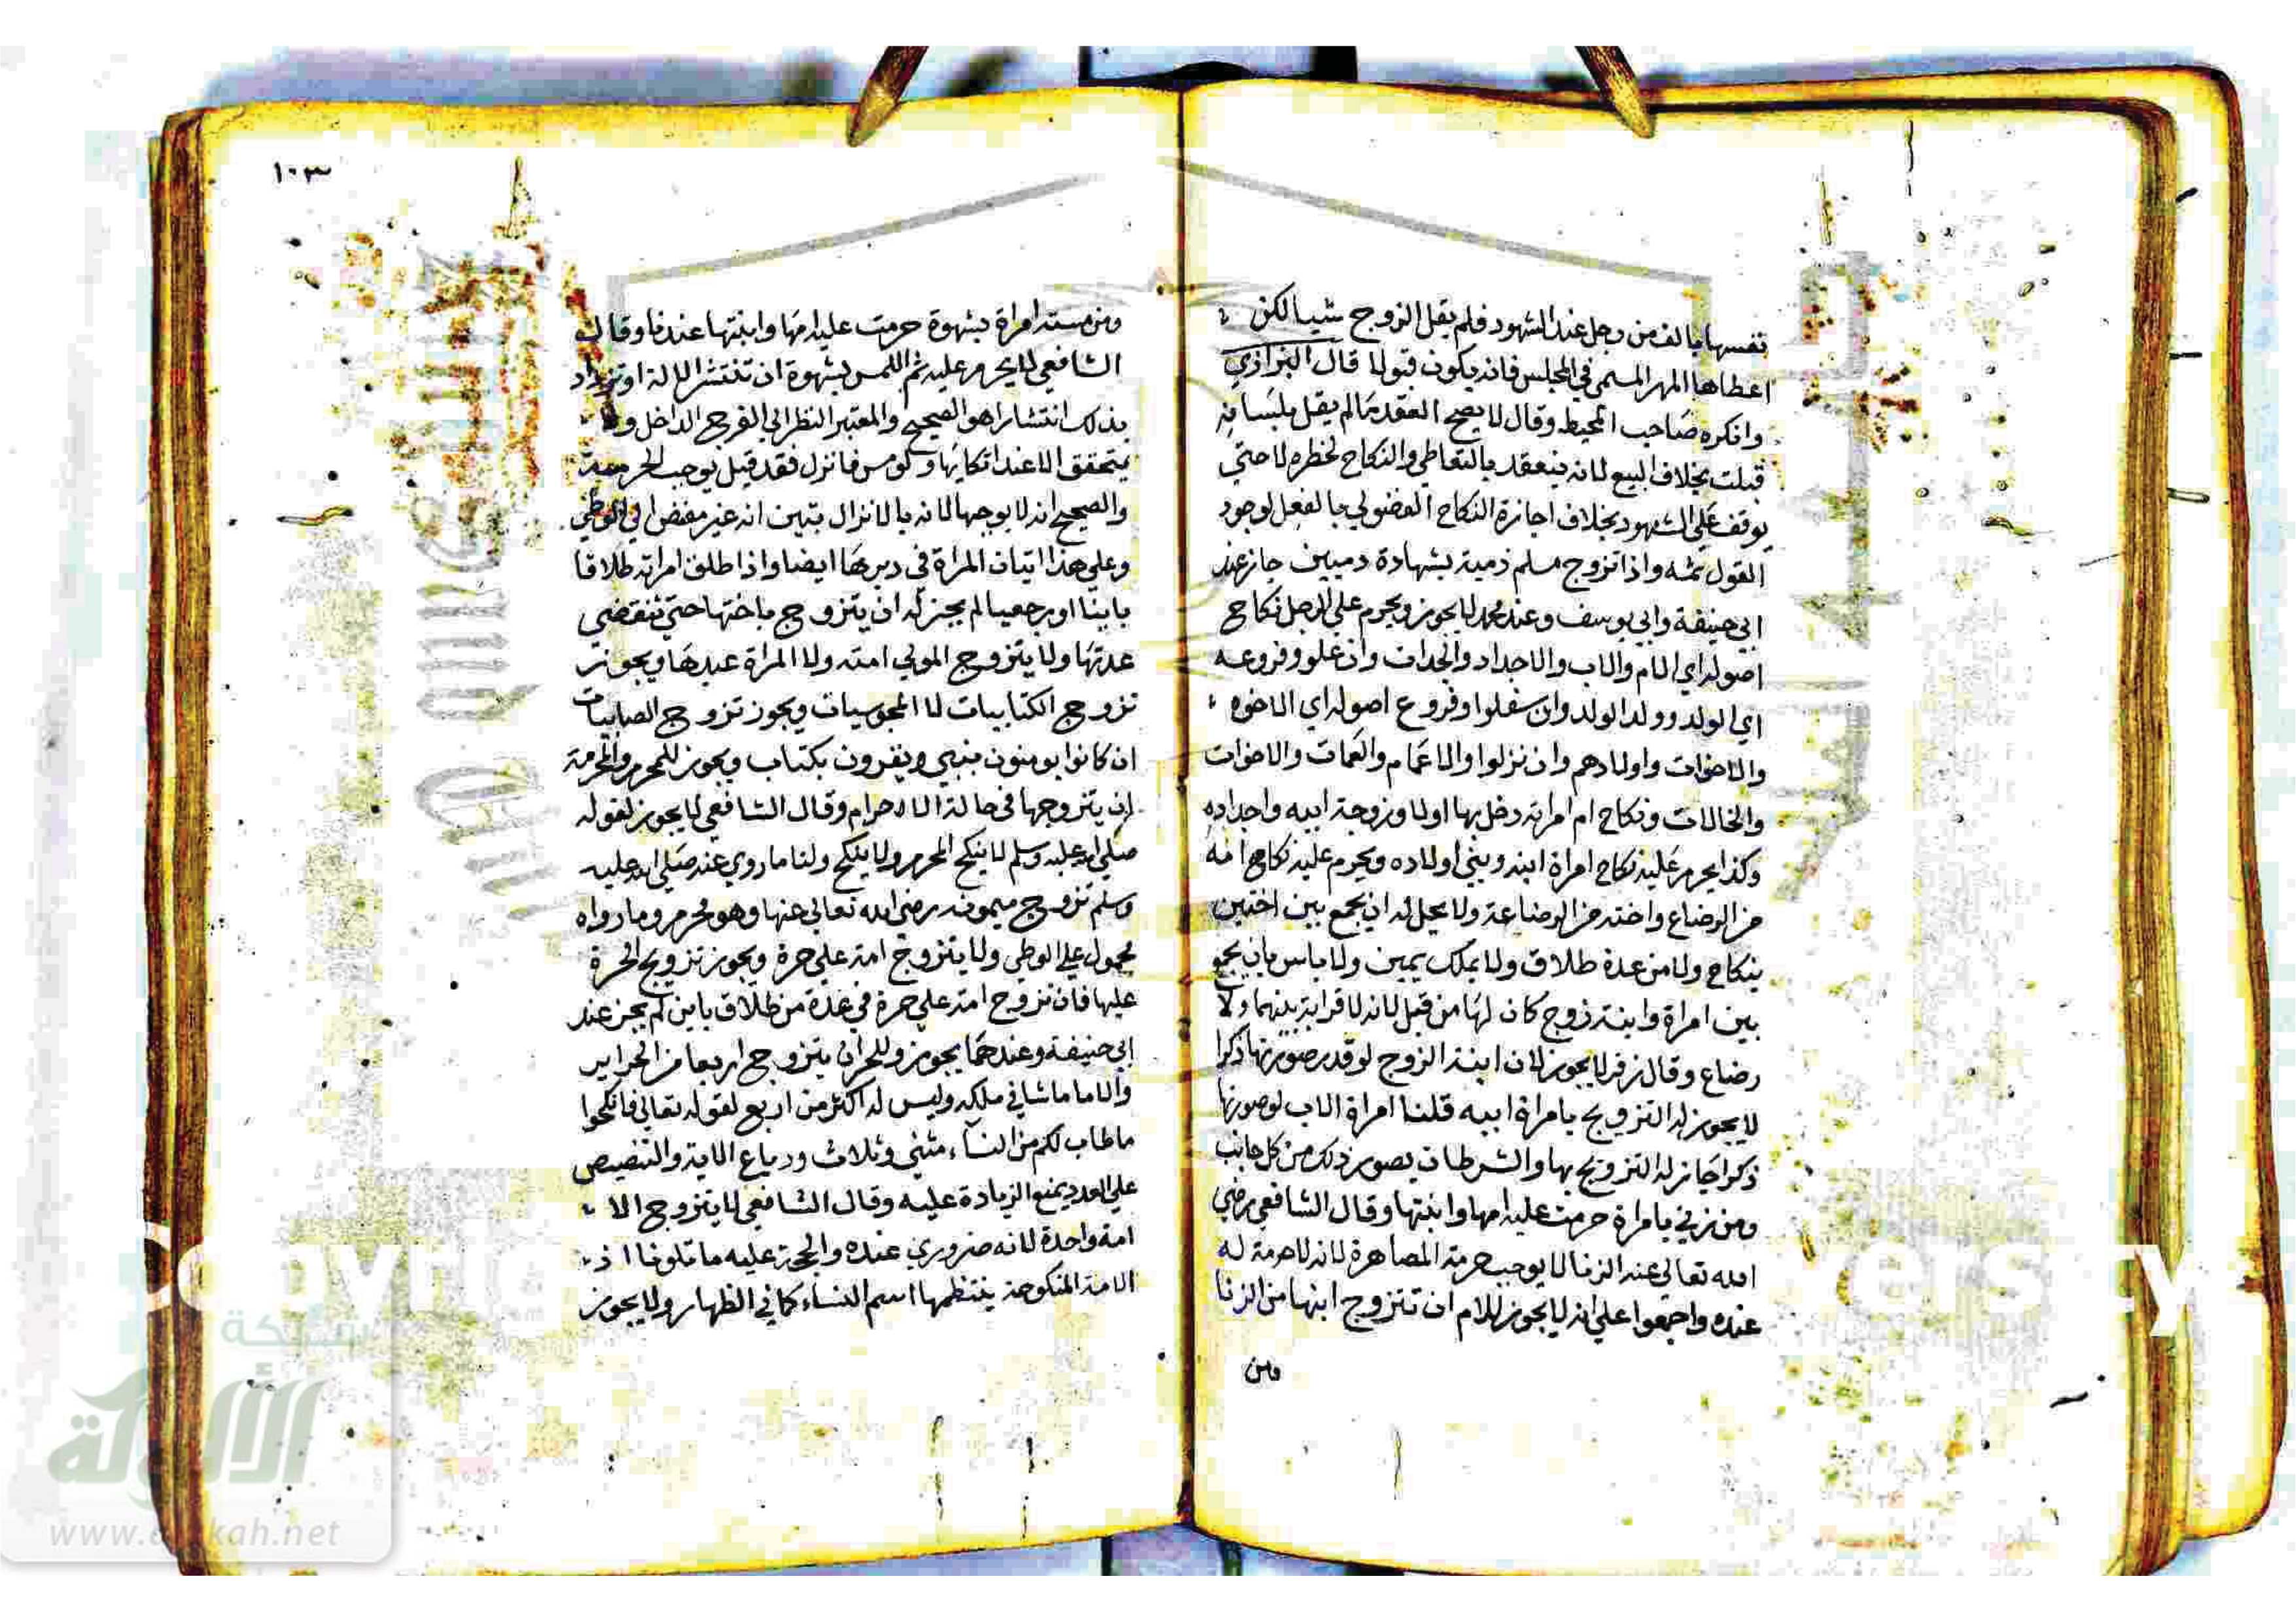 نفسها بالف من رجل عند الشهود فلم يقل الزوج شيا لكن
اعطاها المهر المسمى في المجلس فانه يكون قبولا قال البزازي
وانكره صاحب المحيط وقال لا يصح العقد ما لم يقل بلسانه
قبلت بخلاف البيع لانه ينعقد بالتعاطي والنكاح لخطره لا حتي
يوقف علي الشهود بخلاف اجازة النكاح الفضولي بالفعل لوجود
القول ثمه واذا تزوج مسلم ذمية بشهادة دميين جاز عند
ابي حنيفة وابي يوسف وعند محمد لا يجوز ويحرم علي الرجل نكاح
اصوله اي الام والاب والاجداد والجدات وان علو وفروعه
اي الولد وولد الولد وان سفلوا وفروع اصوله اي الاخوه
والاخوات واولادهم وان نزلوا والاعمام والعمات والاخوات
والخالات ونكاح ام امراته دخل بها اولا وزوجة ابيه واجداده
وكذا يحرم عليه نكاح امراة ابنه وبني اولاده ويحرم عليه نكاح امه
من الرضاع واخته من الرضاعة ولا يحل له ان يجمع بين اختين
بنكاح ولا من عدة طلاق ولا بملك يمين ولا باس بان يجمع
بين امراة وابنة زوج كان لها من قبل لانه لا قرابة بينهما ولا
رضاع وقال زفر لا يجوز لان ابنة الزوج لو قدر صورتها ذكرا
لا يجوز له التزويج بامراة ابيه قلنا امراة الاب لو صورتها
ذكرا جاز له التزويج بها والشرط ان يصور ذلك من كل جانب
ومن زني بامراة حرمت عليه امها وابنتها وقال الشافعي رضي
الله تعالي عنه الزنا لا يوجب حرمة المصاهرة لانه لا حرمة له
عنده واجمعوا علي انه لا يجوز للام ان تتزوج ابنها من الزنا
ومن
١٠٣
ومن مسته امراة بشهوة حرمت عليه امها وابنتها عندنا وقال
الشافعي لا يحرم عليه ثم اللمس بشهوة ان تنتشر الالة او تزداد
بذلك انتشارا هو الصحيح والمعتبر النظر الي الفرج الداخل ولا
يتحقق الا عند اتكايها ولو مس فانزل فقد قيل يوجب الحرمة
والصحيح انه لا يوجبها لانه بالانزال يتبين انه غير مفض الي الوطي
وعلي هذا اتيان المراة في دبرها ايضا واذا طلق امراته طلاقا
باينا او رجعيا لم يجز له ان يتزوج باختها حتي تنقضي
عدتها ولا يتزوج المولي امته ولا المراة عبدها ويجوز
تزوج الكتابيات لا المجوسيات ويجوز تزوج الصابيات
ان كانوا يومنون بنبي ويقرون بكتاب ويجوز للمحرم والمحرمة
ان يتزوجها في حالة الاحرام وقال الشافعي لا يجوز لقوله
صلي الله عليه وسلم لا ينكح المحرم ولا ينكح ولنا ما روي عنه صلي الله عليه
وسلم تزوج ميمونه رضي الله تعالي عنها وهو محرم وما رواه
محمول علي الوطي ولا يتزوج امة علي حرة ويجوز تزويج الحرة
عليها فان تزوج امة علي حرة في عدة من طلاق باين لم يجز عند
ابي حنيفة وعندهما يجوز وللحر ان يتزوج اربعا من الحراير
والاما ما شا في ملكه وليس له اكثر من اربع لقوله تعالي فانكحوا
ما طاب لكم من النساء مثني وثلاث ورباع الاية والتنصيص
علي العدد يمنع الزيادة عليه وقال الشافعي لا يتزوج الا
امة واحدة لانه ضروري عنده والحجة عليه ما تلونا اذ
الامة المنكوحة ينتظمها اسم النساء كما في الظهار ولا يجوز
شبكة
الألوكة
www.alukah.net